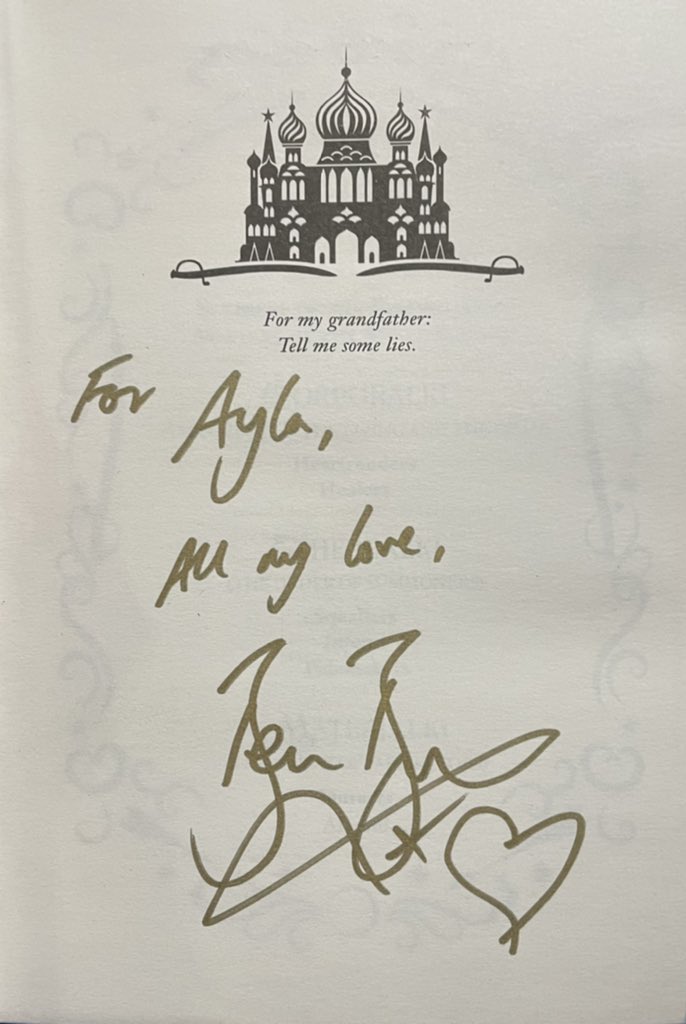 For my grandfather:
Tell me some lies.
For Ayla,
All my love,
Ben